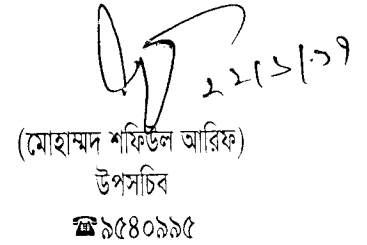 ২২/১/১৭
(মোহাম্মদ শফিউল আরিফ)
উপসচিব
☎৯৫৪০৯৯৫